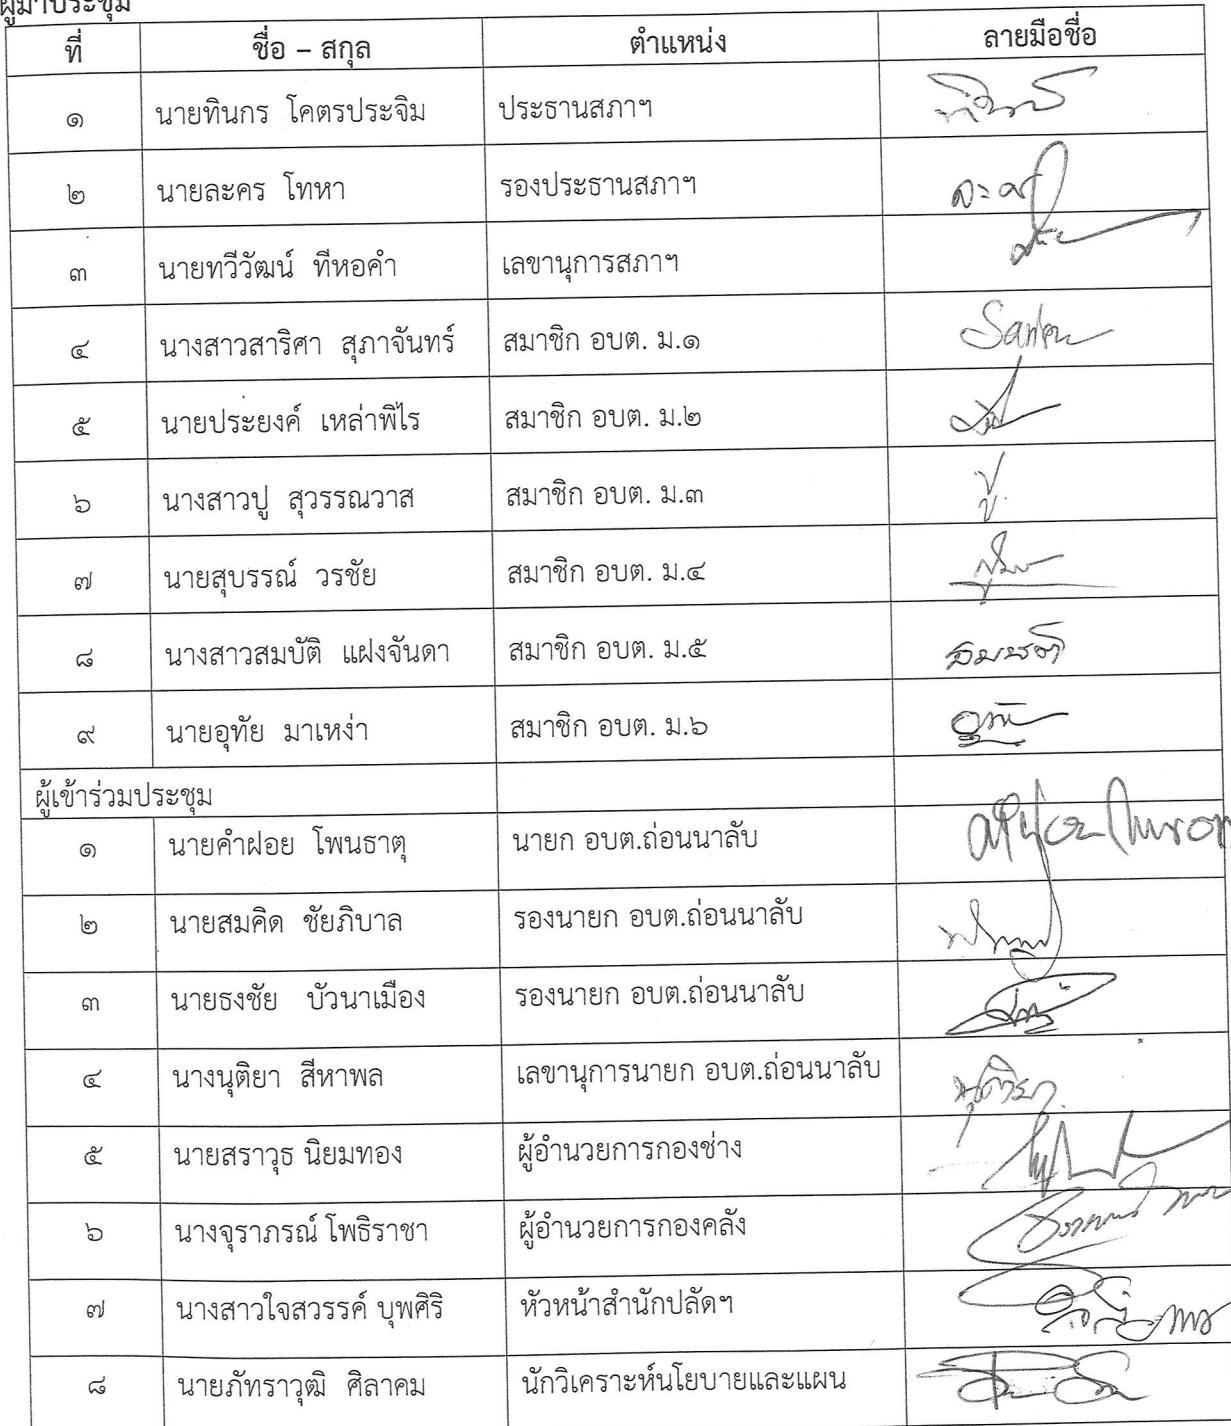 ผู้มาประชุม
ที่ ชื่อ – สกุล ตำแหน่ง ลายมือชื่อ
๑ นายทินกร โคตรประจิม ประธานสภาฯ
๒ นายละคร โทหา รองประธานสภาฯ
๓ นายทวีวัฒน์ ทีหอคำ เลขานุการสภาฯ
๔ นางสาวสาริศา สุภาจันทร์ สมาชิก อบต. ม.๑
๕ นายประยงค์ เหล่าพิไร สมาชิก อบต. ม.๒
๖ นางสาวปู สุวรรณวาส สมาชิก อบต. ม.๓ ปู
๗ นายสุบรรณ์ วรชัย สมาชิก อบต. ม.๔
๘ นางสาวสมบัติ แฝงจันดา สมาชิก อบต. ม.๕ สมบัติ
๙ นายอุทัย มาเหง่า สมาชิก อบต. ม.๖
ผู้เข้าร่วมประชุม
๑ นายคำฝอย โพนธาตุ นายก อบต.ถ่อนนาลับ
๒ นายสมคิด ชัยภิบาล รองนายก อบต.ถ่อนนาลับ
๓ นายธงชัย บัวนาเมือง รองนายก อบต.ถ่อนนาลับ
๔ นางนุติยา สีหาพล เลขานุการนายก อบต.ถ่อนนาลับ นุติยา
๕ นายสราวุธ นิยมทอง ผู้อำนวยการกองช่าง
๖ นางจุราภรณ์ โพธิราชา ผู้อำนวยการกองคลัง
๗ นางสาวใจสวรรค์ บุพศิริ หัวหน้าสำนักปลัดฯ
๘ นายภัทราวุฒิ ศิลาคม นักวิเคราะห์นโยบายและแผน